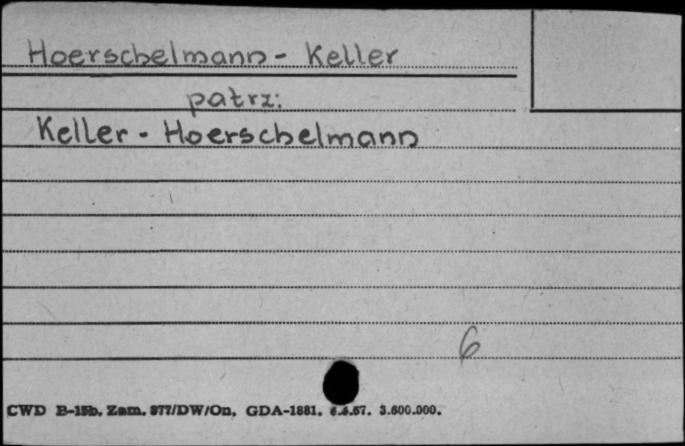 Hoerschelmann - Keller
patrz:
Keller - Hoerschelmann
6
CWD B-15b. Zam. 977/DW/On, GDA-1881. 6.4.57. 3.600.000.